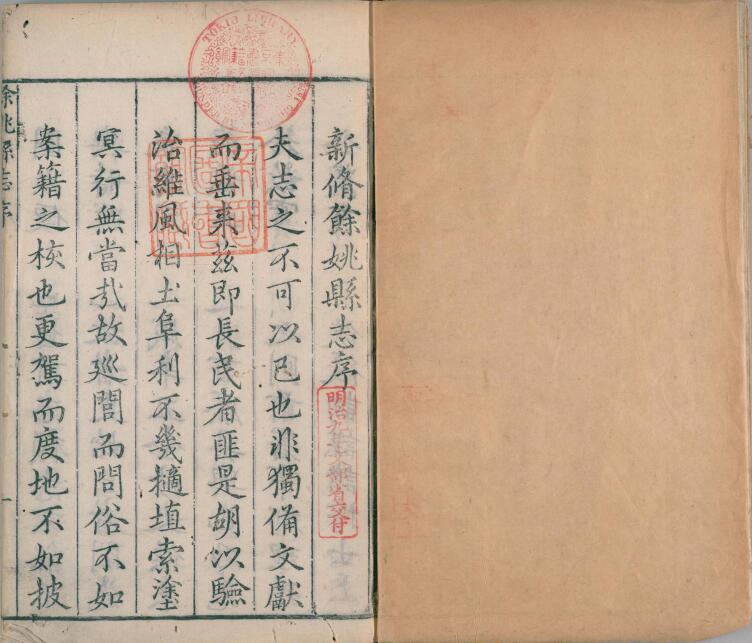 新脩餘姚縣志序
夫志之不可以已也非獨備文獻
而垂来茲即長民者匪是胡以驗
治維風相土阜利不幾擿埴索塗
冥行無當哉故廵閭而問俗不如
案籍之核也更駕而度地不如披
餘姚縣志序
一
TOKIO LIBRARY
明治九年文部省交付